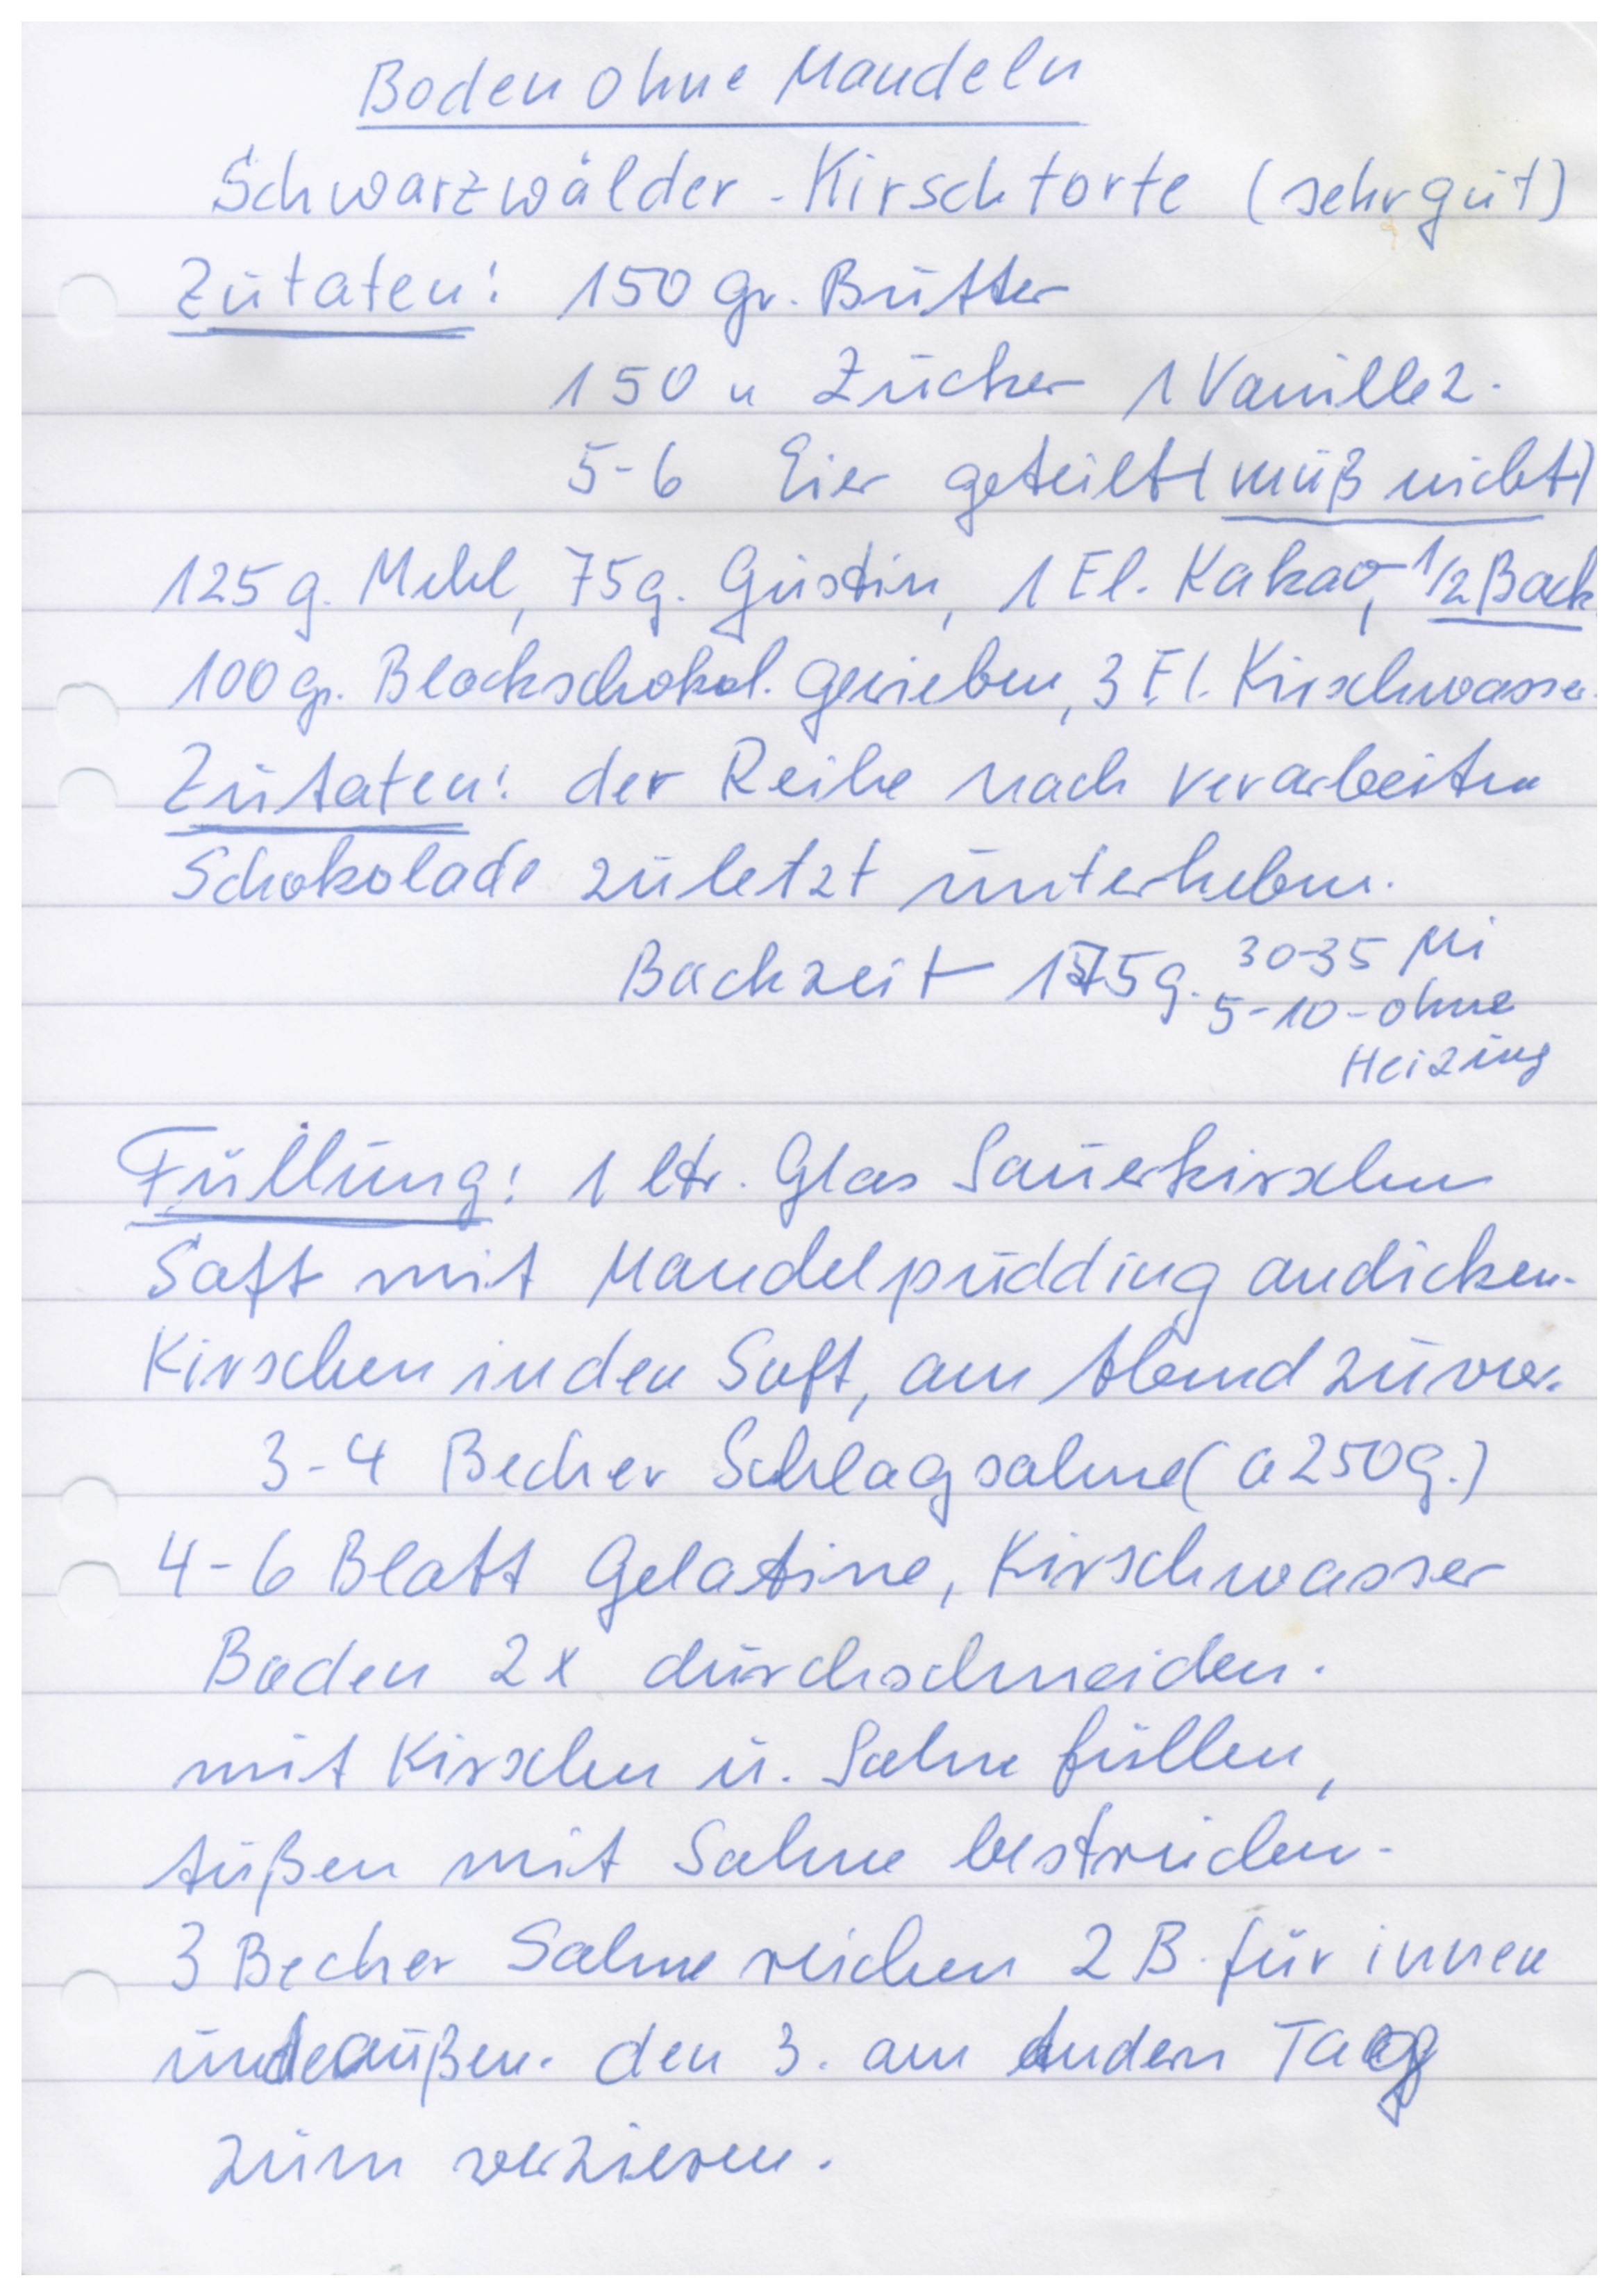 Boden ohne Mandeln
Schwarzwälder-Kirschtorte (sehr gut)
Zutaten: 150 gr. Butter
150 " Zucker 1 Vanillez.
5-6 Eier geteilt (muß nicht)
125 g. Mehl, 75 g. Gustin, 1 El. Kakao, 1/2 Back
100 gr. Blockschokol. gerieben, 3 El. Kirschwasser
Zutaten: der Reihe nach verarbeiten
Schokolade zuletzt unterheben.
Backzeit 175 g. 30-35 Mi
5-10-ohne
Heizung
Füllung: 1 ltr. Glas Sauerkirschen
Saft mit Mandelpudding andicken.
Kirschen in den Saft, am Abend zuvor.
3-4 Becher Schlagsahne (a 250 g.)
4-6 Blatt Gelatine, Kirschwasser
Boden 2x durchschneiden.
mit Kirschen u. Sahne füllen,
Außen mit Sahne bestreichen.
3 Becher Sahne reichen 2 B. für innen
und außen. den 3. am andern Tag
zum verzieren.